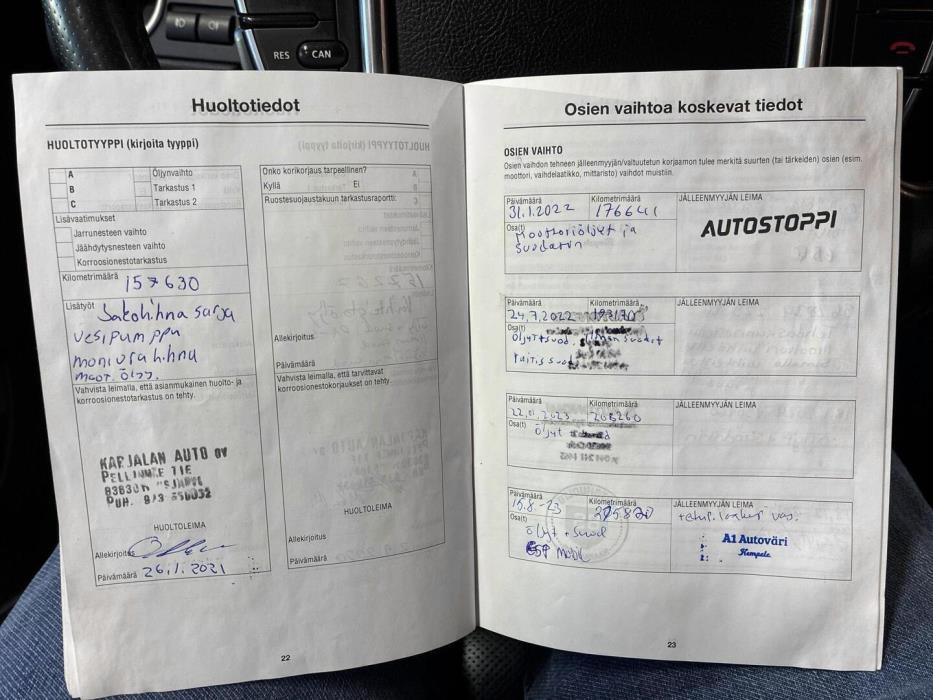 RES
CAN
Huoltotiedot
HUOLTOTYYPPI (kirjoita tyyppi)
A Öljynvaihto
B Tarkastus 1
C Tarkastus 2
Lisävaatimukset
Jarrunesteen vaihto
Jäähdytysnesteen vaihto
Korroosionestotarkastus
Kilometrimäärä
157630
Lisätyöt
Jakohihna sarja
vesipumppu
moniurahihna
moot. öljy.
Vahvista leimalla, että asianmukainen huolto- ja
korroosionestotarkastus on tehty.
KARJALAN AUTO OY
TIE
HUOLTOLEIMA
Allekirjoitus
Päivämäärä 26.1.2021
Onko korikorjaus tarpeellinen?
Kyllä Ei
Ruostesuojaustakuun tarkastusraportti:
Allekirjoitus
Päivämäärä
Vahvista leimalla, että tarvittavat
korroosionestokorjaukset on tehty.
HUOLTOLEIMA
Allekirjoitus
Päivämäärä
22
Osien vaihtoa koskevat tiedot
OSIEN VAIHTO
Osien vaihdon tehneen jälleenmyyjän/valtuutetun korjaamon tulee merkitä suurten (tai tärkeiden) osien (esim.
moottori, vaihdelaatikko, mittaristo) vaihdot muistiin.
Päivämäärä Kilometrimäärä JÄLLEENMYYJÄN LEIMA
31.1.2022 176641
Osa(t)
Moottoriöljyt ja
suodatin
AUTOSTOPPI
Päivämäärä Kilometrimäärä JÄLLEENMYYJÄN LEIMA
24.7.2022
Osa(t)
öljyt+suod.
Päivämäärä Kilometrimäärä JÄLLEENMYYJÄN LEIMA
2023
Osa(t)
öljyt
Päivämäärä Kilometrimäärä JÄLLEENMYYJÄN LEIMA
15.8.-23
Osa(t)
öljyt + suod
ESP Mobil
A1 Autoväri
Kempele
23